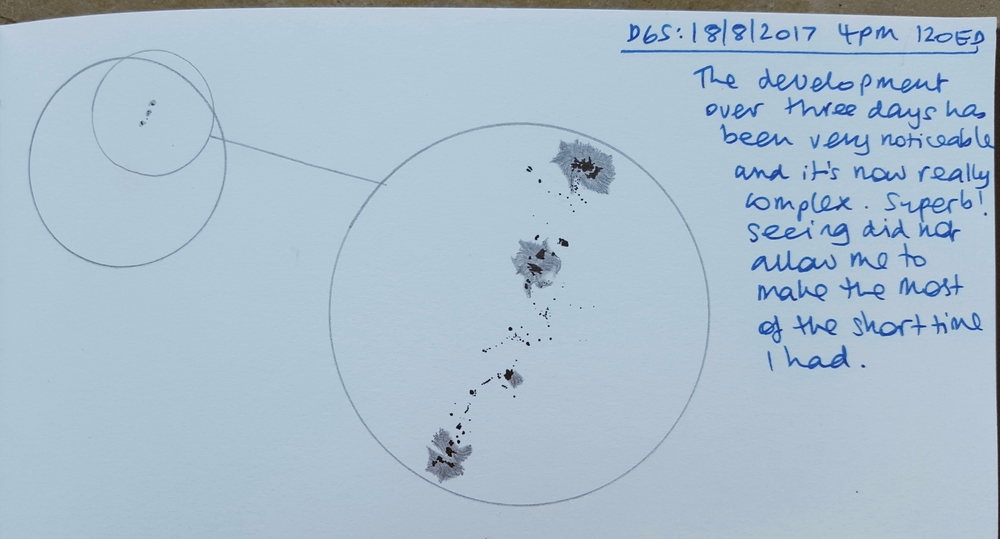 D6S: 18/8/2017 4pm 120ED
The development
over three days has
been very noticeable
and it's now really
complex. Superb!
Seeing did not
allow me to
make the most
of the short time
I had.